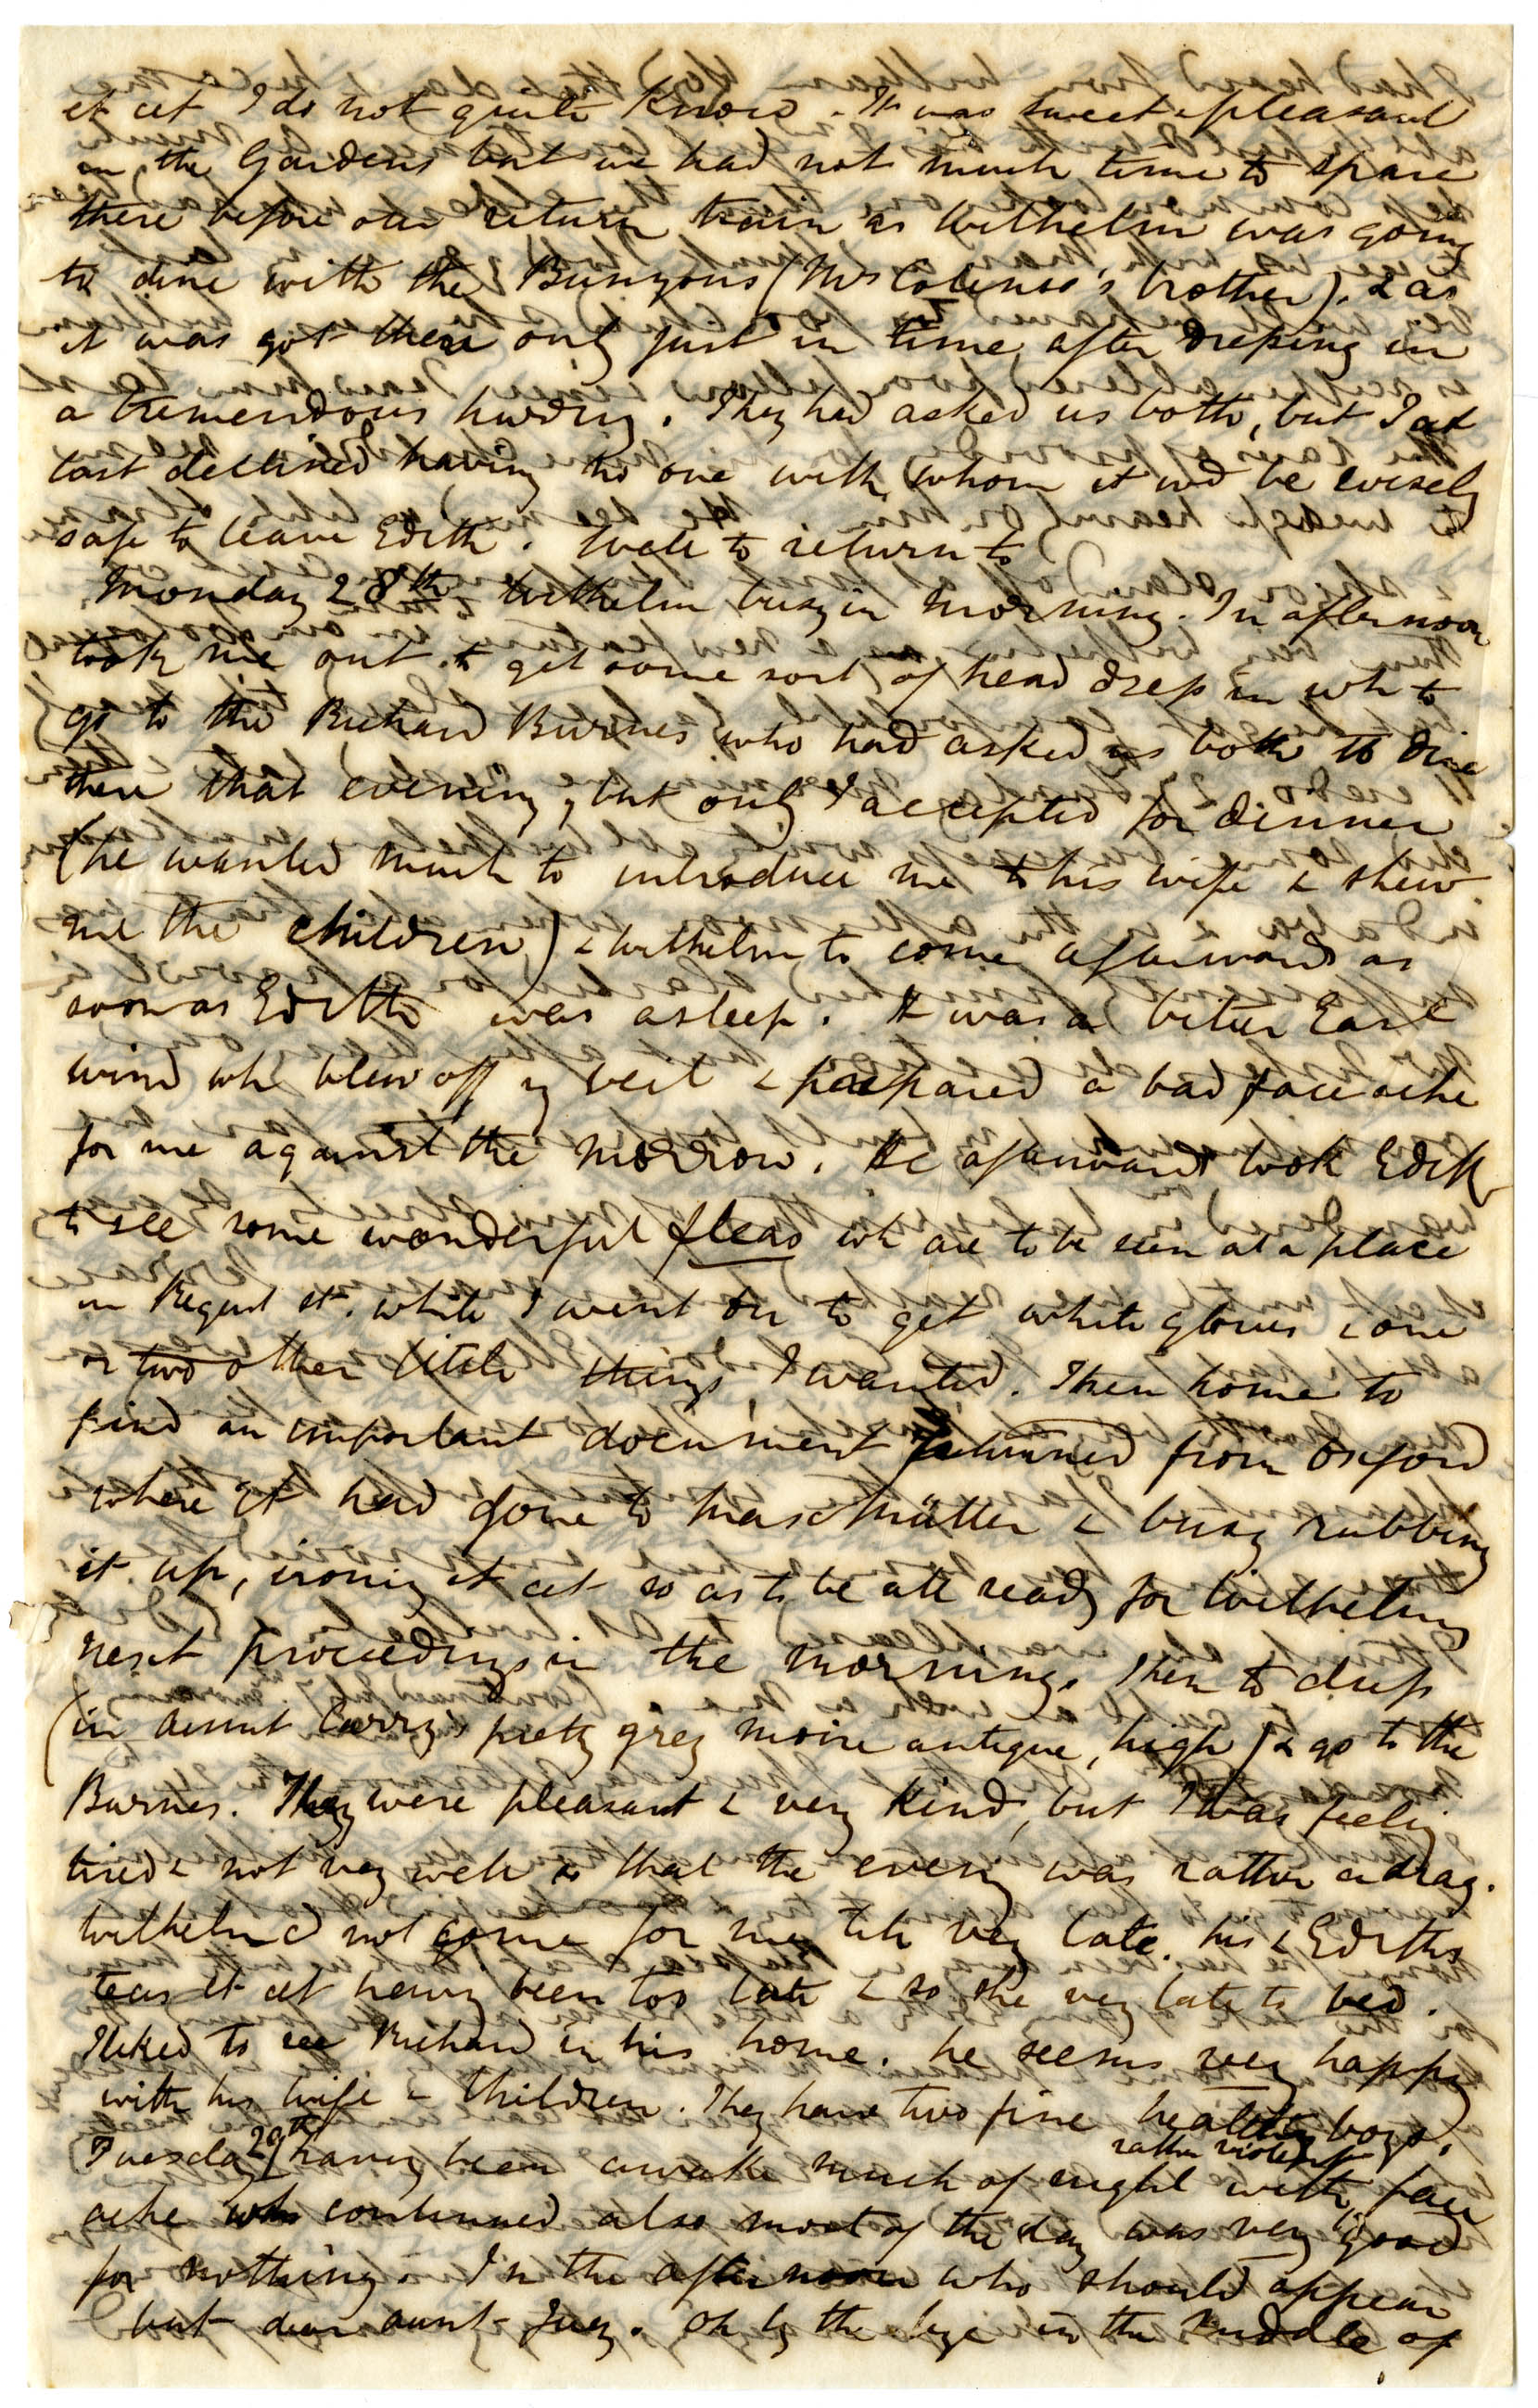 et cet I do not quite know. It was sweet & pleasant
in the Gardens but we had not much time to spare
there before our return train as Wilhelm was going
to dine with the Bunyons (Mrs Colenso's brother). & as
it was got there only just in time after dressing in
a tremendous hurry. They had asked us both, but I at
last declined having no one with whom it wd be wisely
safe to leave Edith. Well to return to
Monday 28th Wilhelm busy in morning. In afternoon
took me out to get some sort of head dress in wh to
go to the Richard Burnes who had asked us both to dine
there that evening, but only I accepted for dinner
(he wanted much to introduce me to his wife & shew
me the children) & Wilhelm to come afterwards as
soon as Edith was asleep. It was a bitter East
wind wh blew off my veil & prepared a bad face ache
for me against the morrow. He afterwards took Edith
to see some wonderful fleas wh are to be seen at a place
in Regent St. while I went on to get white gloves & one
or two other little things I wanted. Then home to
find an important document returned from Oxford
where it had gone to Max Müller & busy rubbing
it up, ironing it cet so as to be all ready for Wilhelms
next proceedings in the morning. Then to dress
(in Aunt Carry's pretty grey moire antique, high) & go to the
Burnes. They were pleasant & very kind, but I was feeling
tired & not very well so that the evening was rather a drag.
Wilhelm cd not come for me till very late. his & Ediths
teas et cet having been too late & so she very late to bed.
I liked to see Richard in his home. he seems very happy
with his wife & children. They have two fine healthy boys.
Tuesday 29th having been awake much of night with rather violent face
ache wh continued also most of the day was very good
for nothing. In the afternoon who should appear
but dear aunt Juey. Oh by the bye in the middle of